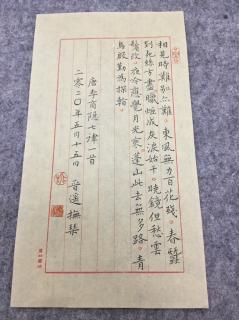 相見時難別亦難東風無力百花殘春蠶
到死絲方盡蠟炬成灰淚始干曉鏡但愁雲
鬢改夜吟應覺月光寒蓬山此去無多路青
鳥殷勤為探看
唐李商隱七律一首
二零二〇年五月十五日